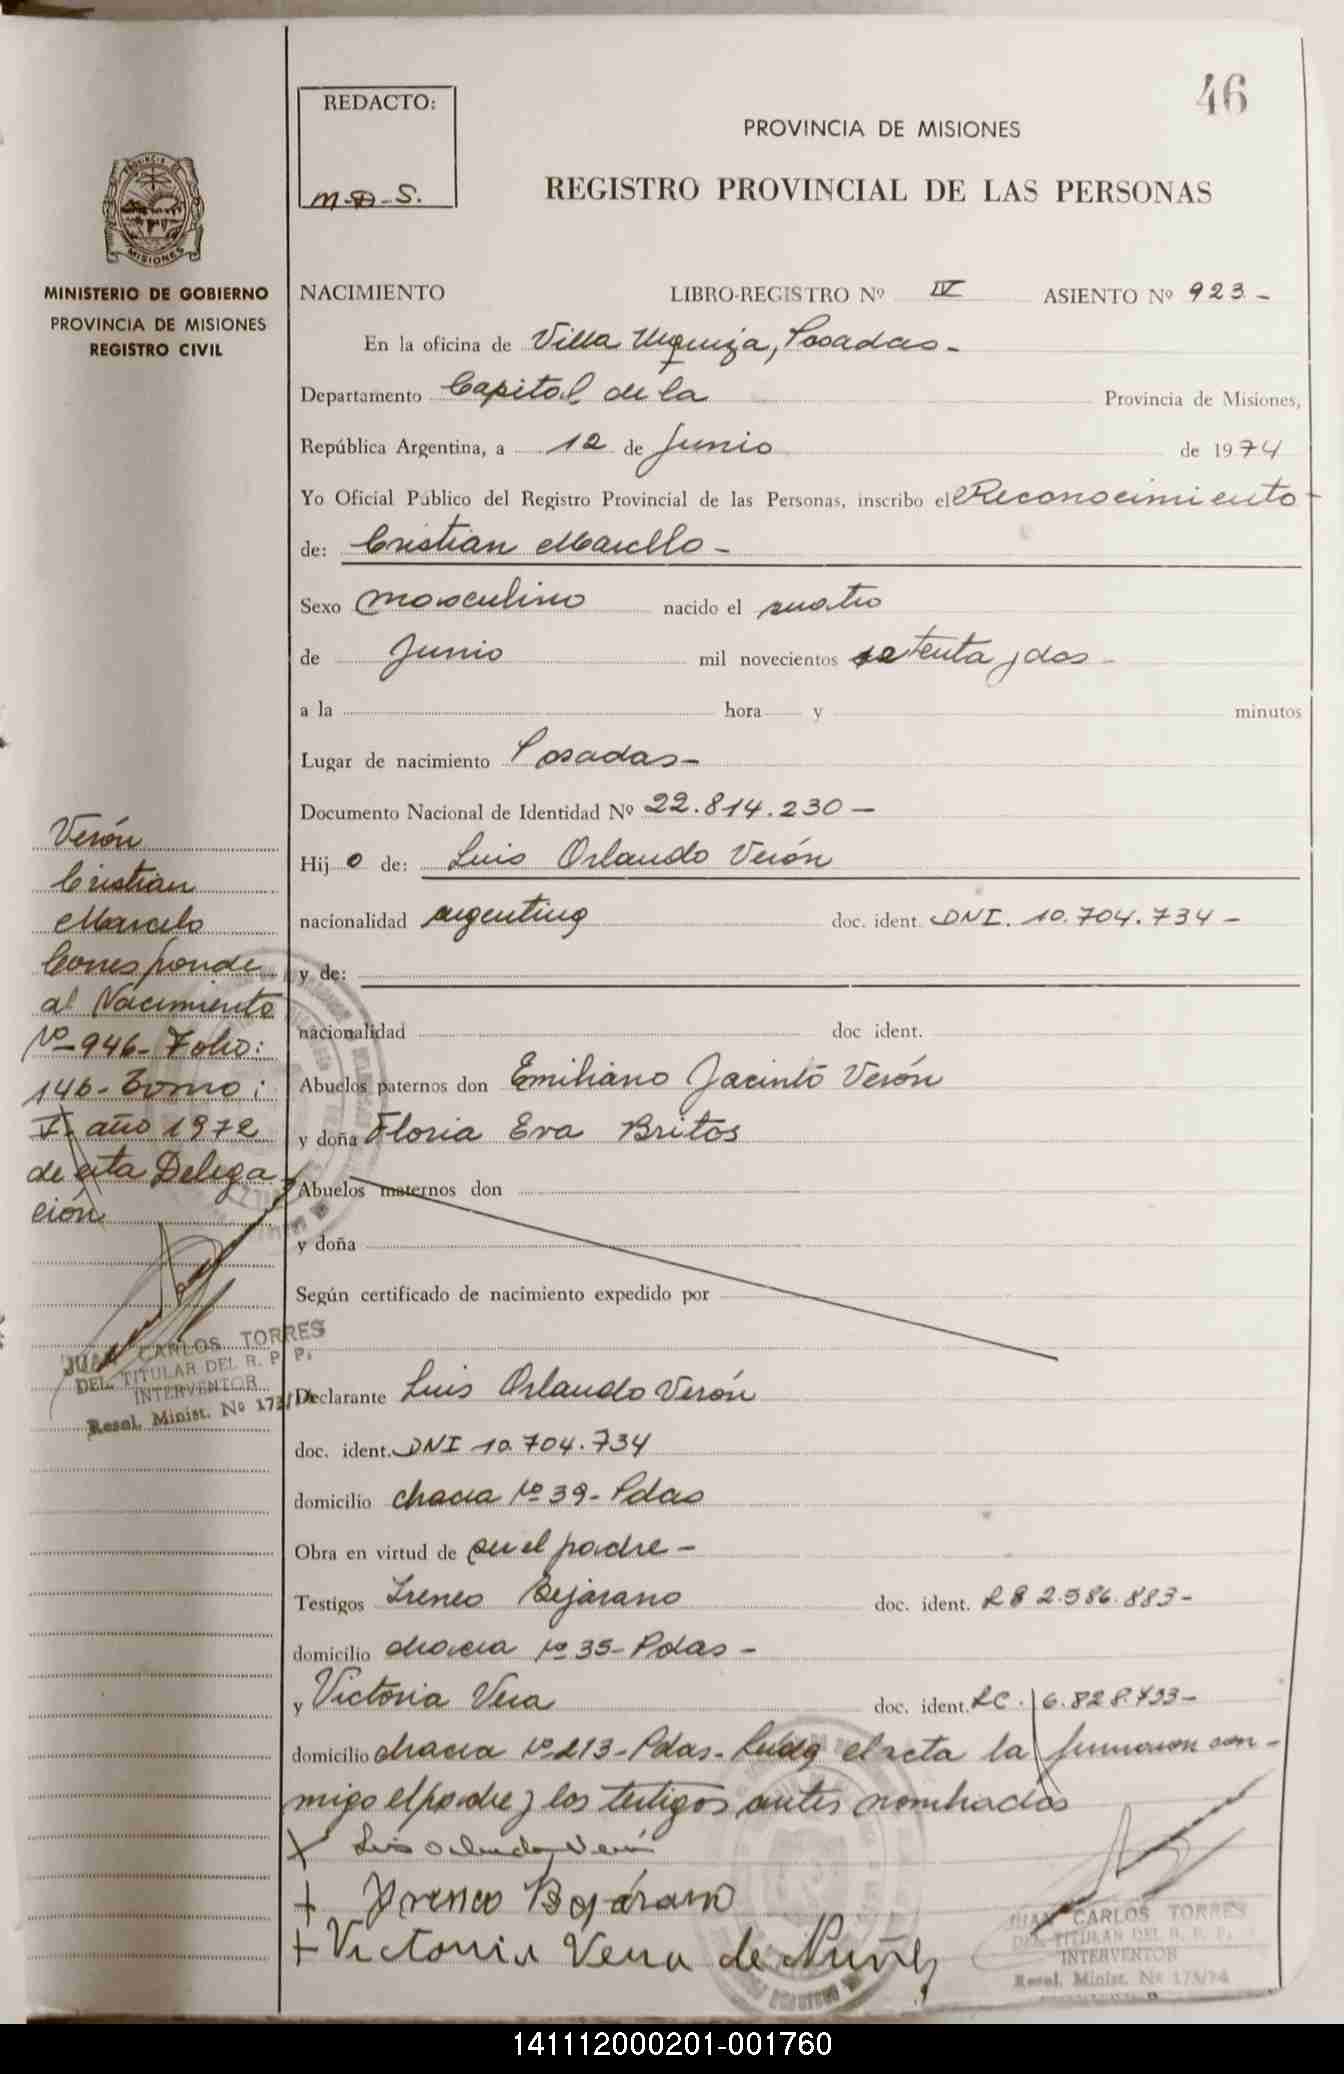 46
REDACTO:
M.D.S.
PROVINCIA DE MISIONES
REGISTRO PROVINCIAL DE LAS PERSONAS
MINISTERIO DE GOBIERNO
PROVINCIA DE MISIONES
REGISTRO CIVIL
NACIMIENTO LIBRO-REGISTRO Nº IV ASIENTO Nº 923-
En la oficina de Villa Urquiza, Posadas-
Departamento Capital de la Provincia de Misiones,
República Argentina, a 12 de Junio de 1974
Yo Oficial Público del Registro Provincial de las Personas, inscribo el Reconocimiento
de: Cristian Marcelo-
Sexo masculino nacido el cuatro
de Junio mil novecientos setenta y dos-
a la hora y minutos
Lugar de nacimiento Posadas-
Documento Nacional de Identidad Nº 22.814.230-
Hijo de: Luis Orlando Verón
nacionalidad argentina doc. ident. DNI. 10.704.734-
y de:
nacionalidad doc ident.
Abuelos paternos don Emiliano Jacinto Verón
y doña Floria Eva Britos
Abuelos maternos don
y doña
Según certificado de nacimiento expedido por
Declarante Luis Orlando Verón
doc. ident. DNI 10.704.734
domicilio chacra Nº 39- Pdas
Obra en virtud de ser el padre-
Testigos Ireneo Bejarano doc. ident. 2.586.883-
domicilio chacra Nº 35- Pdas-
y Victoria Vera doc. ident. LC. 6.828.
domicilio chacra Nº 213- Pdas- Leida el acta la firmaron con-
migo el padre y los testigos antes nombrados
Luis Orlando Verón
Ireneo Bejarano
Victoria Vera de Nuñez
Verón
Cristian
Marcelo
Corresponde
al Nacimiento
Nº-946- Folio:
146- Tomo:
V- año 1972
de esta Delega
ción
JUAN CARLOS TORRES
DEL. TITULAR DEL R. P. P.
INTERVENTOR
Resol. Minist. Nº 173/74
JUAN CARLOS TORRES
DEL. TITULAR DEL R. P. P.
INTERVENTOR
Resol. Minist. Nº 173/74
141112000201-001760